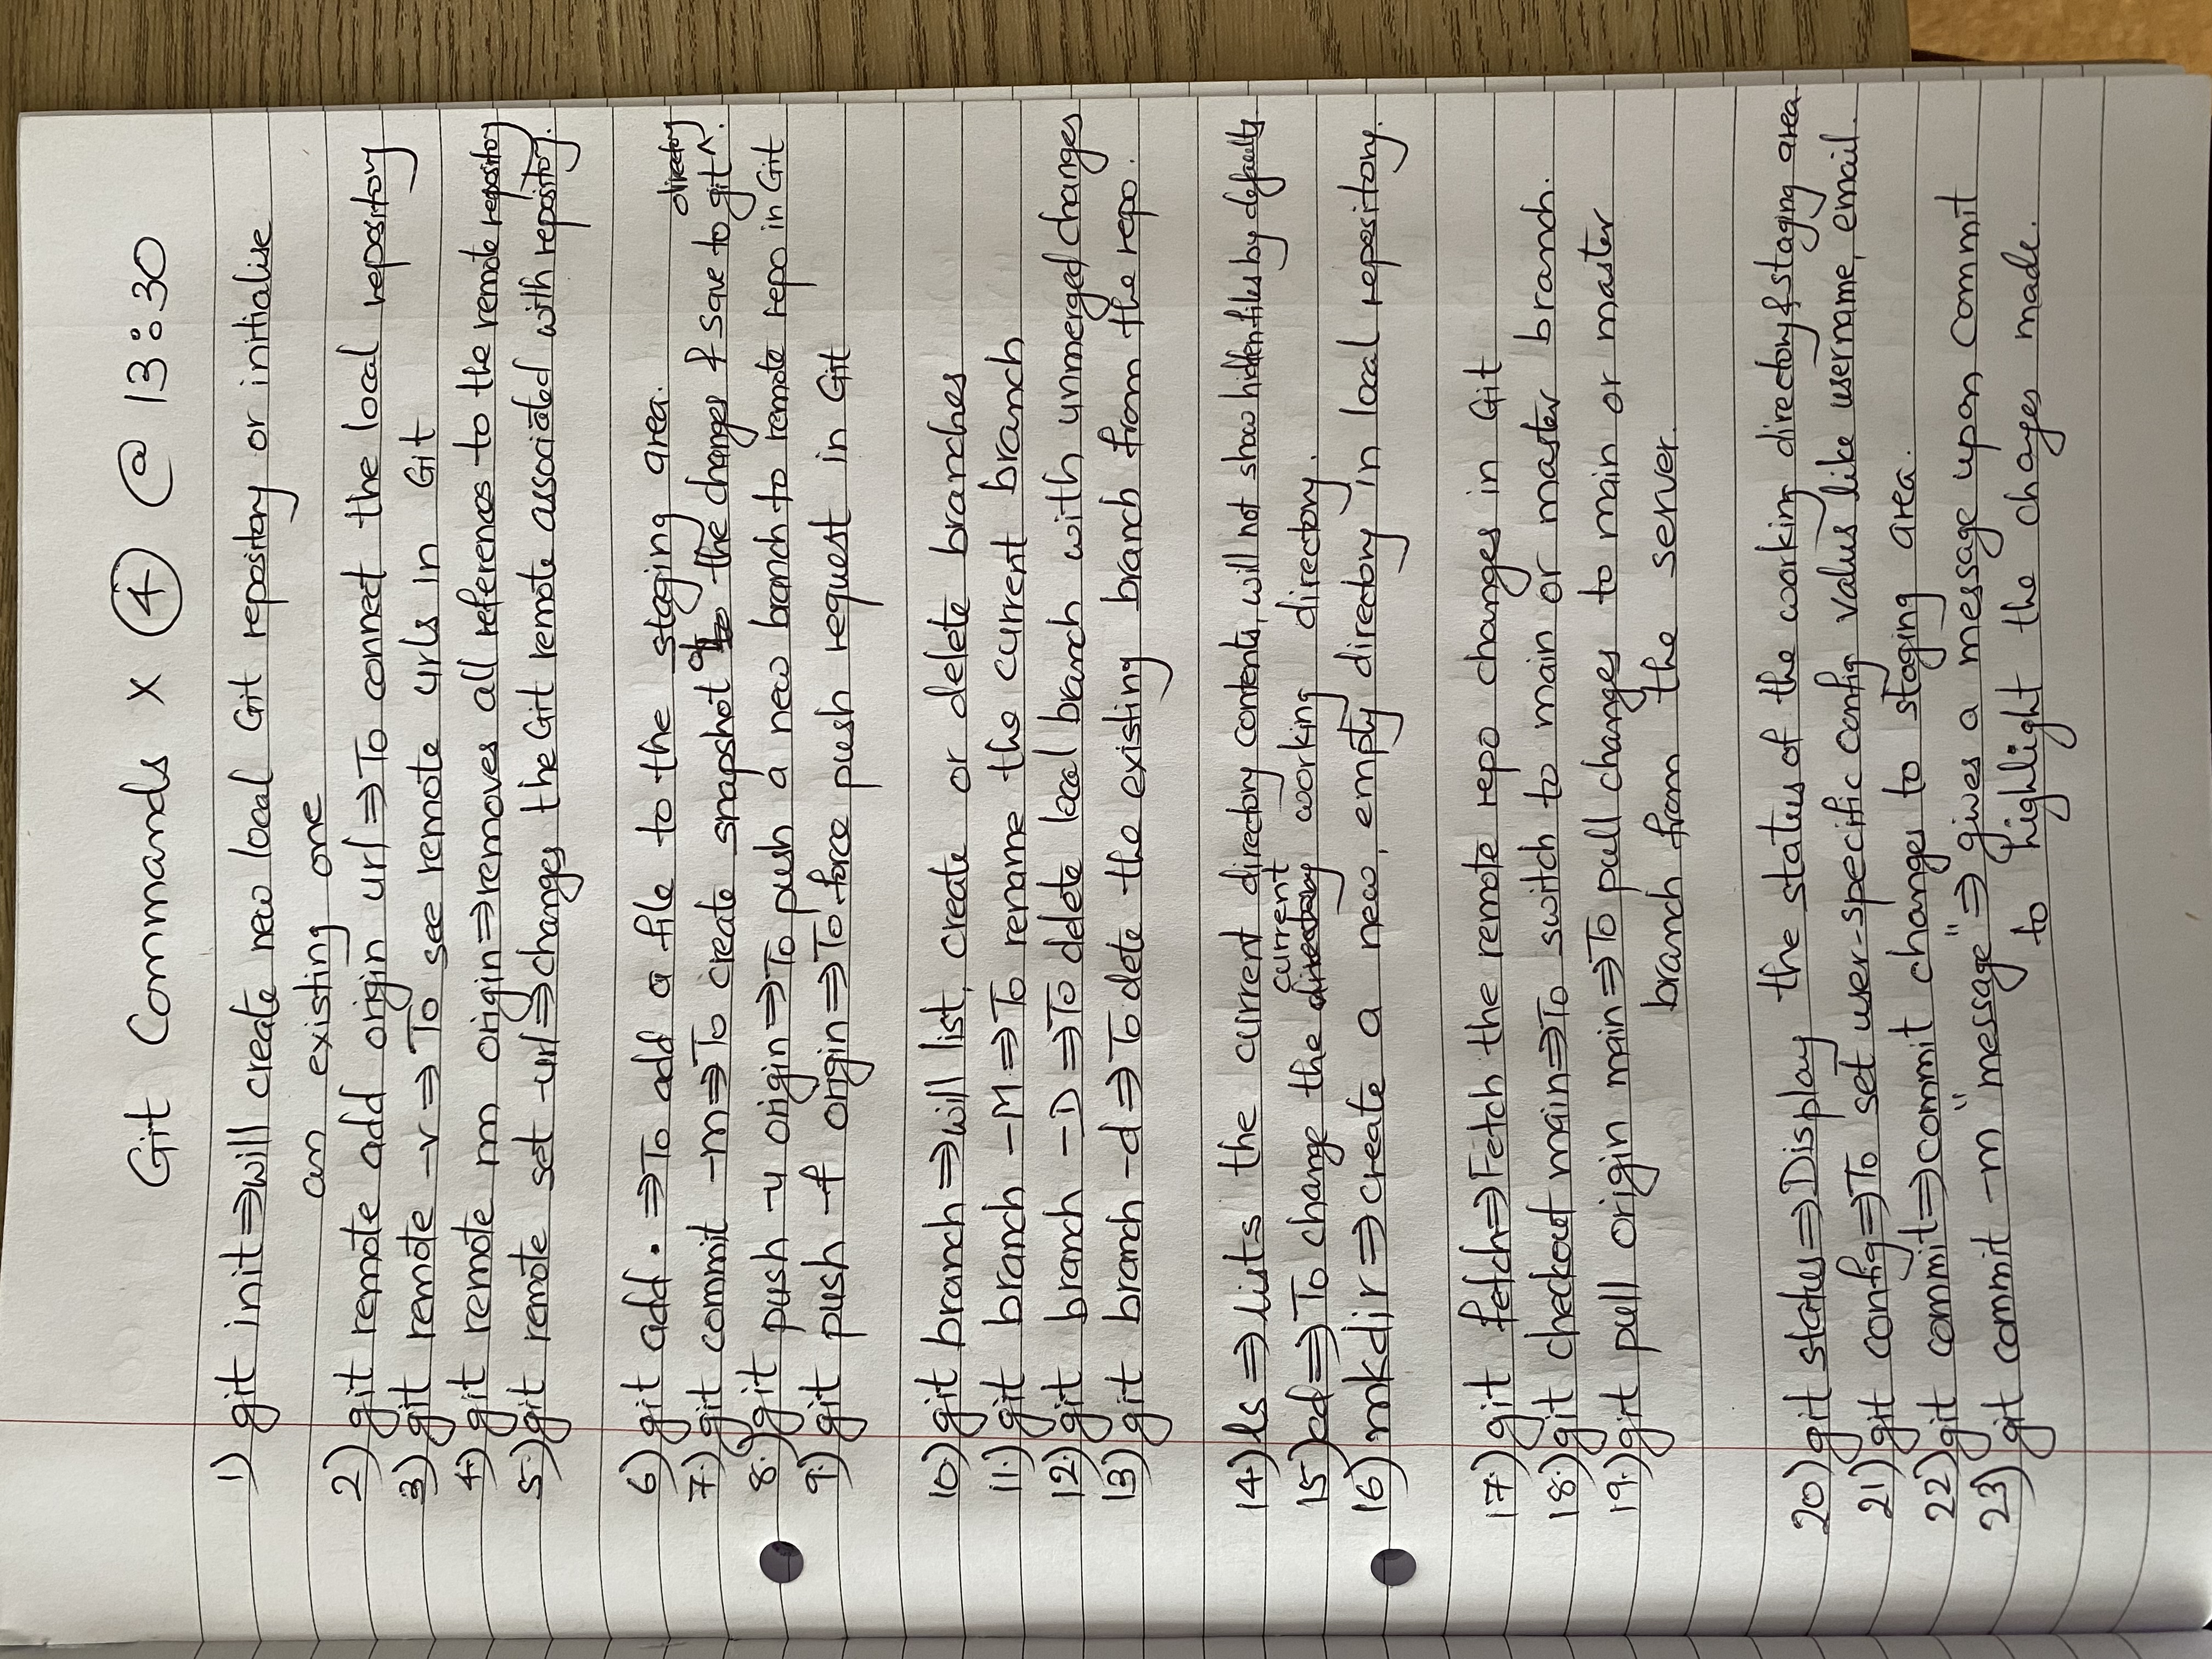 Git Commands x ④ @ 13:30
1) git init ⇒ will create new local Git repository or initialise
an existing one
2) git remote add origin url ⇒ To connect the local repository
3) git remote -v ⇒ To see remote urls in Git
4) git remote rm origin ⇒ removes all references to the remote repository
5) git remote set -url ⇒ changes the Git remote associated with repository.
6) git add . ⇒ To add a file to the staging area.
7.) git commit -m ⇒ To create snapshot of the changes & save to git directory ^.
8.) git push -u origin ⇒ To push a new branch to remote repo in Git
9.) git push -f origin ⇒ To force push request in Git
10.) git branch ⇒ will list, create or delete branches
11.) git branch -M ⇒ To rename the current branch
12.) git branch -D ⇒ To delete local branch with unmerged changes
13.) git branch -d ⇒ To dete the existing branch from the repo.
14.) ls ⇒ lists the current directory contents, will not show hidden files by defaults
15.) cd ⇒ To change the current working directory.
16.) mkdir ⇒ create a new, empty directory in local repository.
17.) git fetch ⇒ Fetch the remote repo changes in Git
18.) git checkout main ⇒ To switch to main or master branch.
19.) git pull origin main ⇒ To pull changes to main or master
branch from the server.
20) git status ⇒ Display the status of the working directory & staging area
21) git config ⇒ To set user-specific config values like username, email.
22) git commit ⇒ commit changes to staging area.
23) git commit -m "message" ⇒ gives a message upon commit
to highlight the chages made.